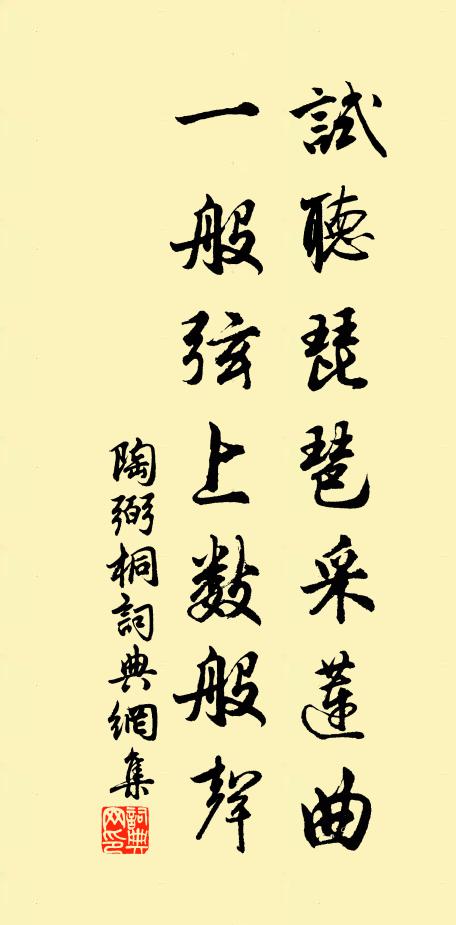 試聽琵琶采蓮曲
一般弦上數般聲
陶弼桐詞典網集
詞典网印